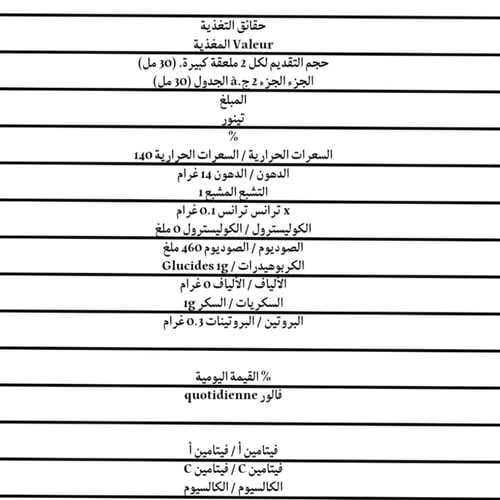 حقائق التغذية
Valeur المغذية
حجم التقديم لكل 2 ملعقة كبيرة. (30 مل)
الجزء الجزء 2 ج.à الجدول (30 مل)
المبلغ
تينور
%
السعرات الحرارية / السعرات الحرارية 140
الدهون / الدهون 14 غرام
التشبع المشبع 1
x ترانس ترانس 0.1 غرام
الكوليسترول / الكوليسترول 0 ملغ
الصوديوم / الصوديوم 460 ملغ
الكربوهيدرات / Glucides 1g
الألياف / الألياف 0 غرام
السكريات / السكر 1g
البروتين / البروتينات 0.3 غرام
% القيمة اليومية
فالور quotidienne
فيتامين أ / فيتامين أ
فيتامين C / فيتامين C
الكالسيوم / الكالسيوم